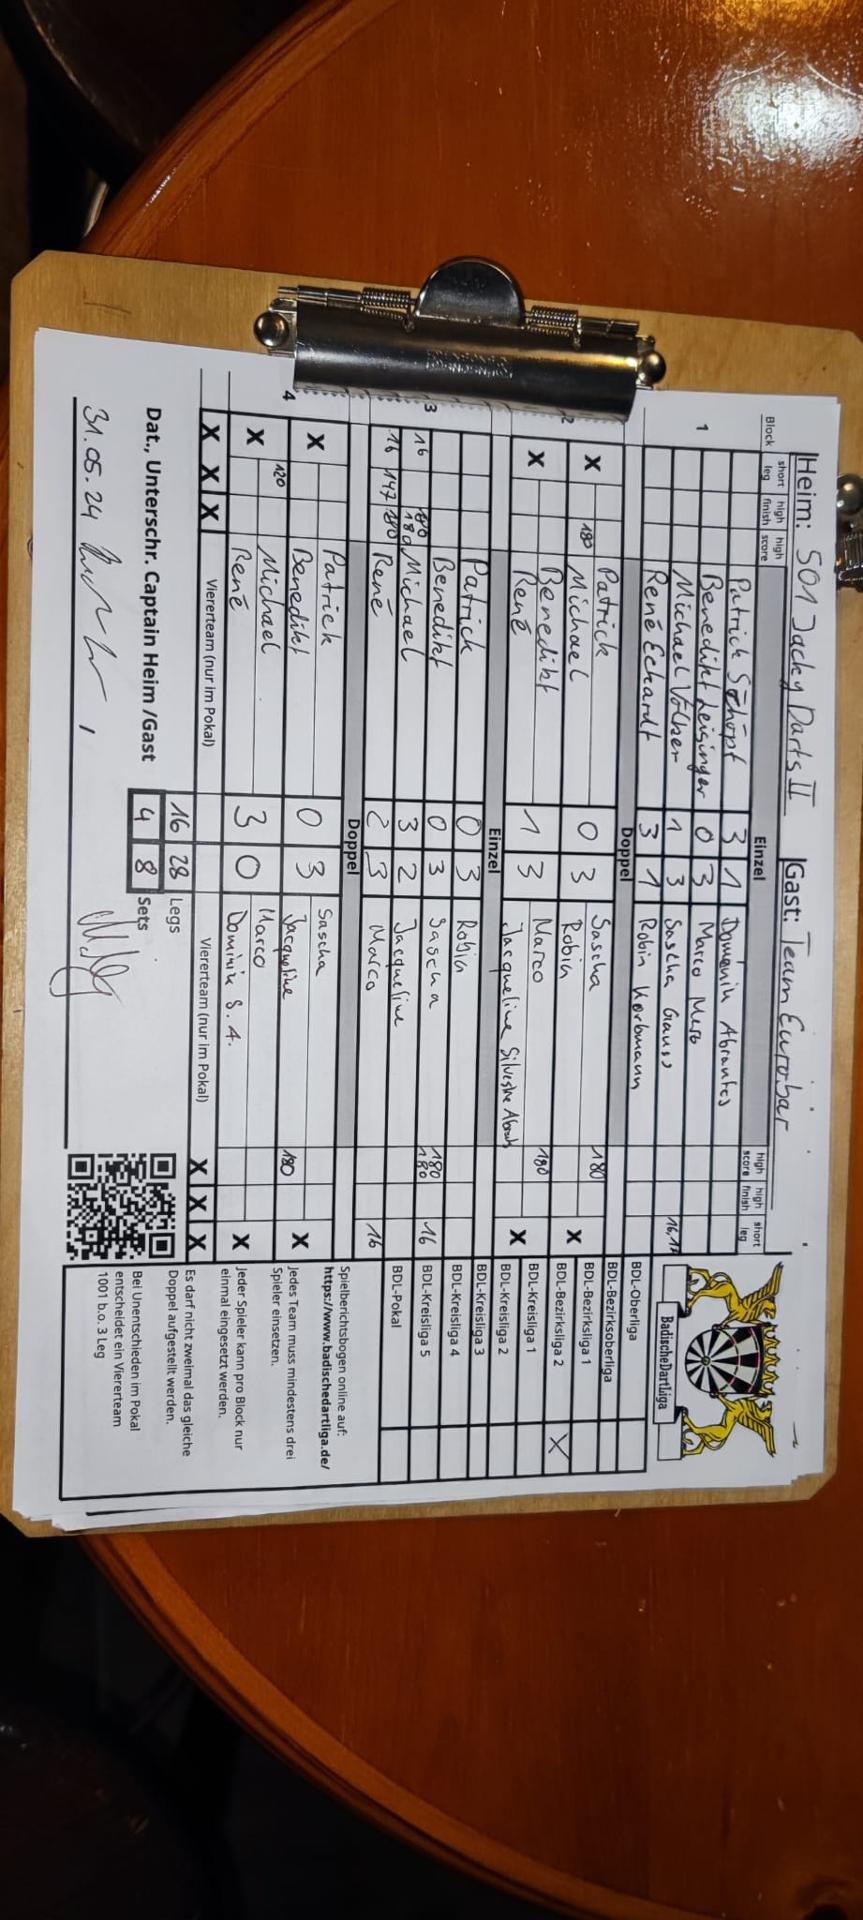 Heim: 501 Jacky Darts II Gast: Team Eurobar
Block short leg high finish high score Einzel high score high finish short leg
1 Patrick Schöpf 3 1 Domenik Abrantes
Benedikt Leisinger 0 3 Marco Mero
Michael Völker 1 3 Sascha Gauss 16,17
René Echardt 3 1 Robin Korbmann
Doppel
2 X 180 Patrick Michael 0 3 Sascha Robin 180 X
X Benedikt René 1 3 Marco Jacqueline Silvestre 180 X
Einzel
3 Patrick 0 3 Robin
16 180 Benedikt 0 3 Sascha 180 180 16
180 Michael 3 2 Jacqueline
16 147 180 René 2 3 Marco 16
Doppel
4 X Patrick Benedikt 0 3 Sascha Jacqueline 180 X
X 120 Michael René 3 0 Marco Dominik S. A. X
X X X Viererteam (nur im Pokal) Viererteam (nur im Pokal) X X X
16 28 Legs
Dat., Unterschr. Captain Heim /Gast 4 8 Sets
31.05.24
BadischeDartLiga
BDL-Oberliga
BDL-Bezirksoberliga
BDL-Bezirksliga 1
BDL-Bezirksliga 2 X
BDL-Kreisliga 1
BDL-Kreisliga 2
BDL-Kreisliga 3
BDL-Kreisliga 4
BDL-Kreisliga 5
BDL-Pokal
Spielberichtsbogen online auf:
https://www.badischedartliga.de/
Jedes Team muss mindestens drei
Spieler einsetzen.
Jeder Spieler kann pro Block nur
einmal eingesetzt werden.
Es darf nicht zweimal das gleiche
Doppel aufgestellt werden.
Bei Unentschieden im Pokal
entscheidet ein Viererteam
1001 b.o. 3 Leg